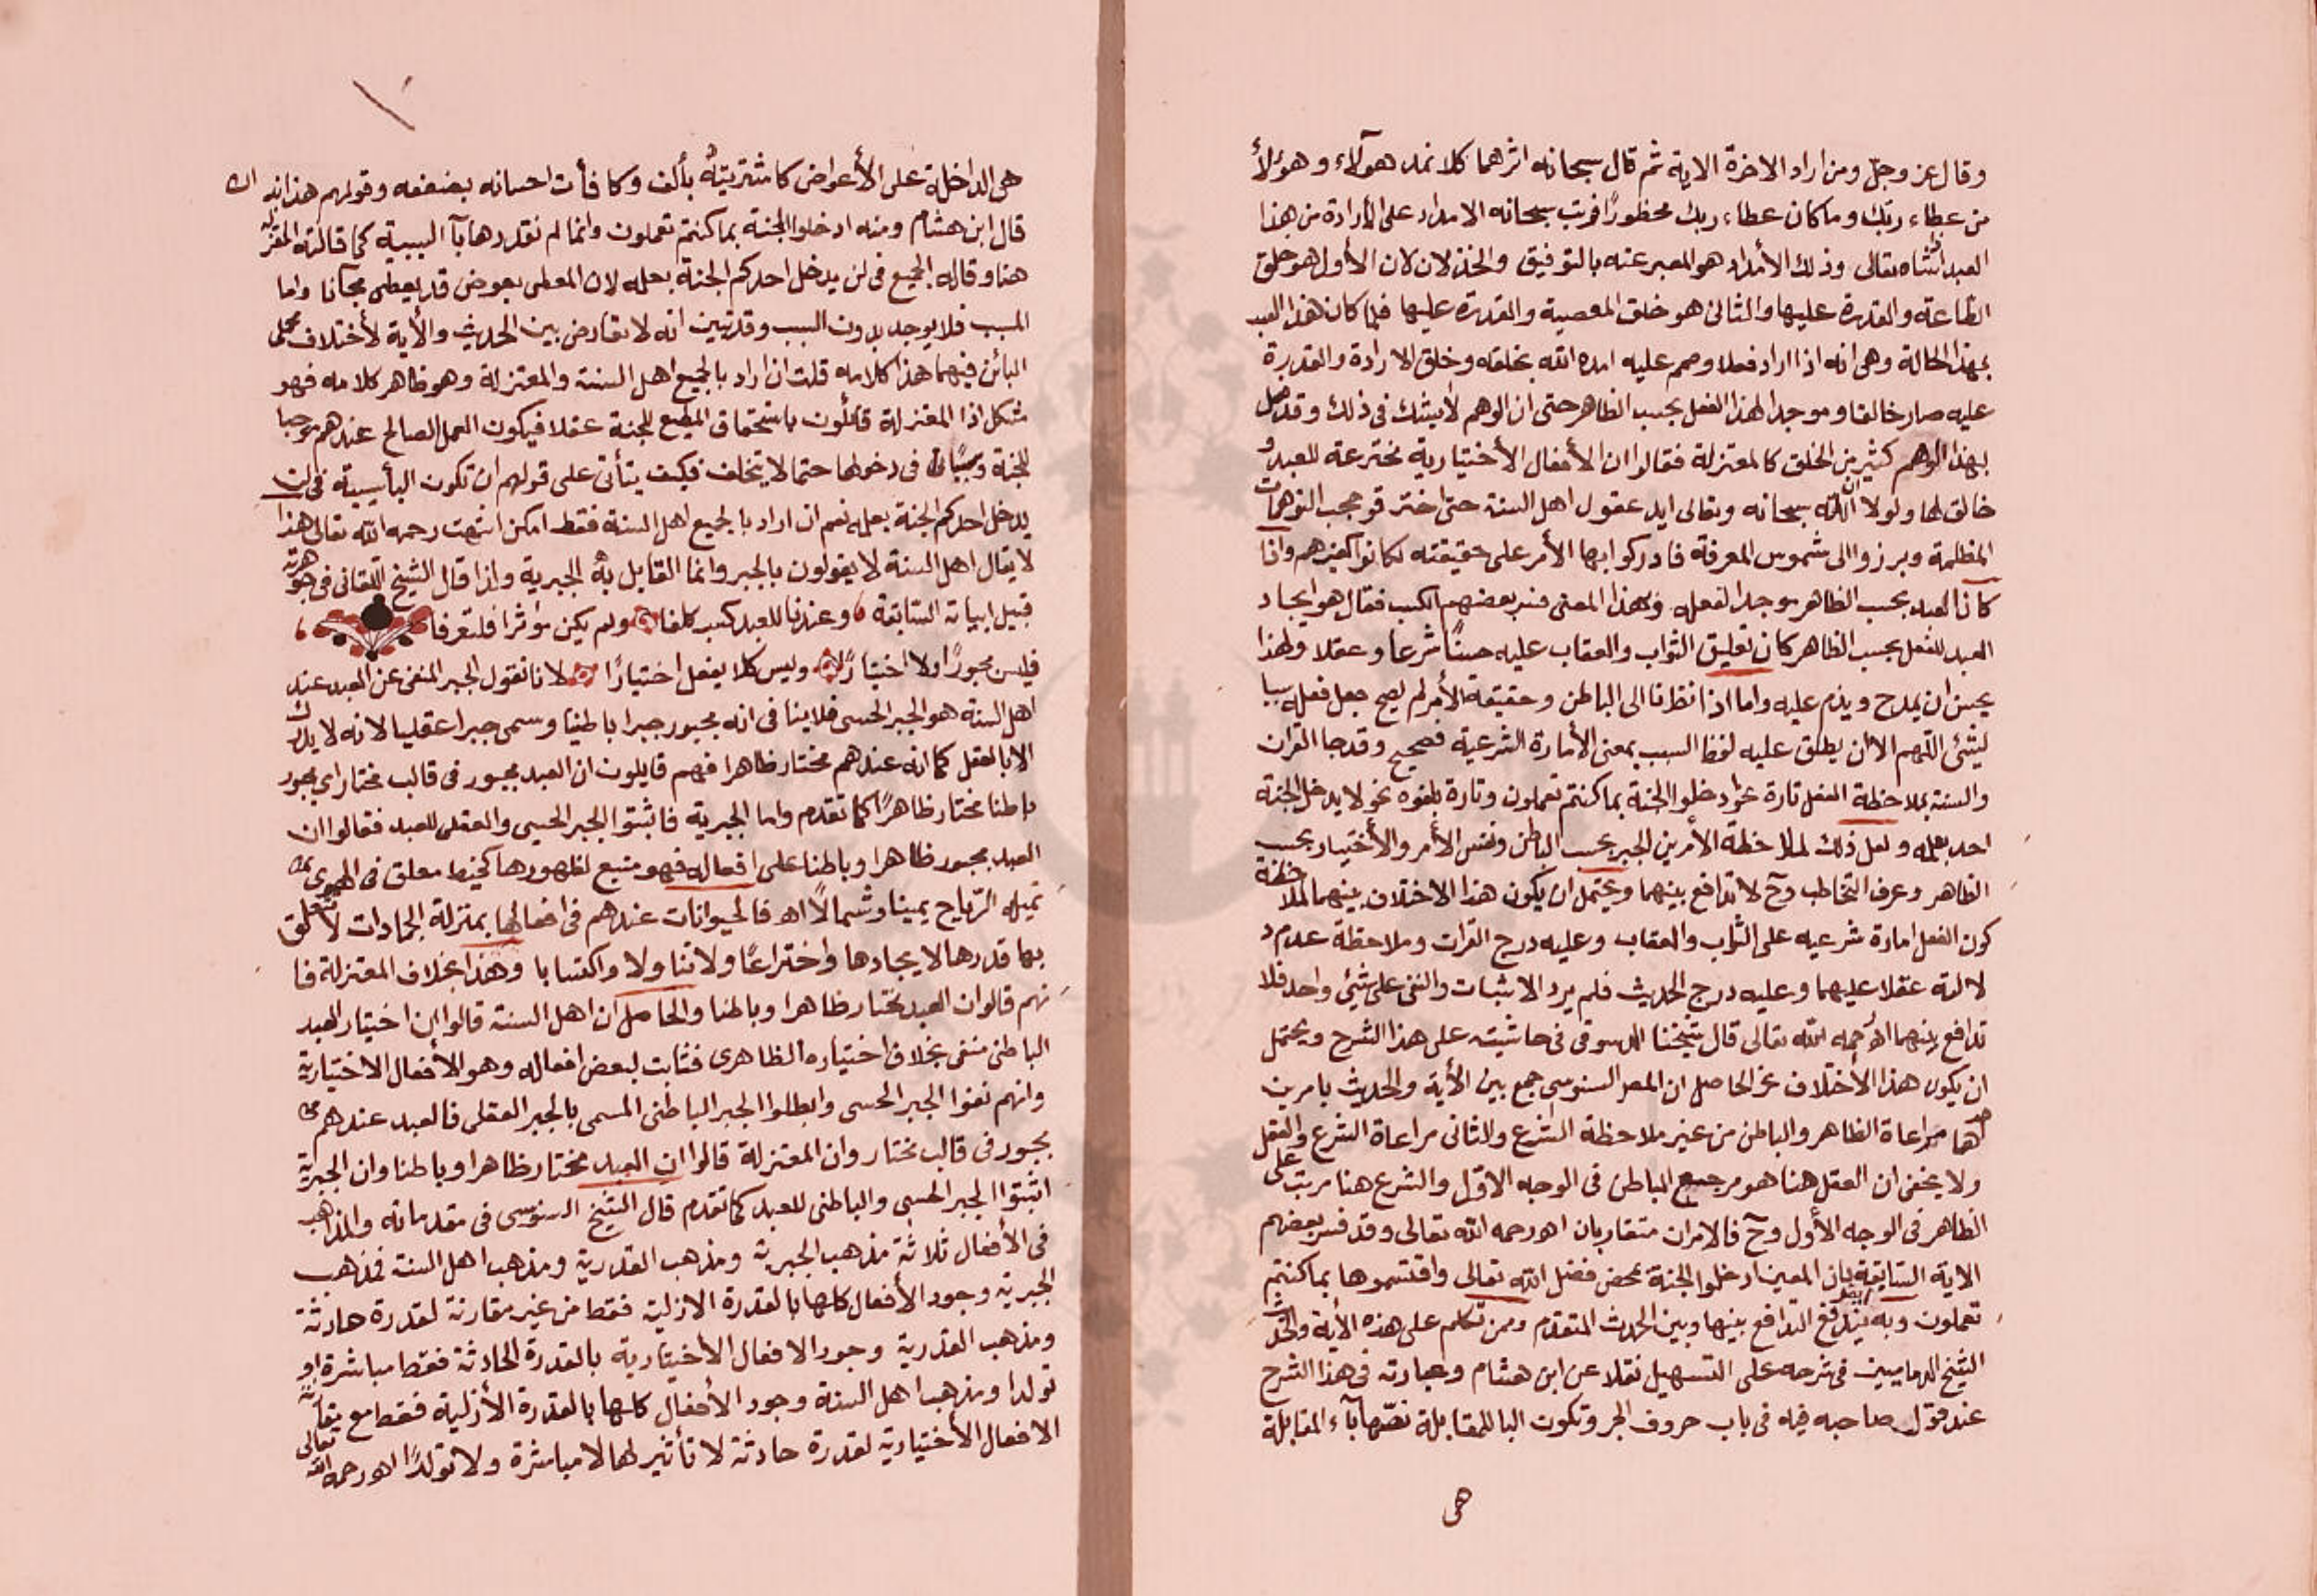 وقال عز وجل ومن اراد الاخرة الاية ثم قال سبحانه اثرهما كلا نمد هؤلاء وهؤلاء
من عطاء ربك وما كان عطاء ربك محظورًا فرتب سبحانه الامداد على الأرادة من هذا
العبد انشاه تعالى وذلك الأمداد هو المعبر عنه بالتوفيق والخذلان لان الأول هو خلق
الطاعة والقدرة عليها والثانى هو خلق المعصية والقدرة عليها فلما كان هذا العبد
بهذا الحالة وهى انه اذا اراد فعلا وصمم عليه امده الله بخلقه وخلق الارادة والقدرة
عليه صار خالقا وموجدا لهذا الفعل بحسب الظاهر حتى ان الوهم لأيشك فى ذلك وقد ضل
بهذا الوهم كثير من الخلق كالمعتزلة فقالوا ان الأفعال الأختيارية مخترعة للعبد و
خالق لها ولولا ان الله سبحانه وتعالى ايد عقول اهل السنة حتى اخترقو حجب التوهمات
المظلمة وبرزوا الى شموس المعرفة فادركوا بها الأمر على حقيقته لكانوا كغيرهم واذا
كانا العبد بحسب الظاهر موجد الفعله ولهذا المعنى فسر بعضهم الكسب فقال هو ايجاد
العبد للفعل بحسب الظاهر كان تعليق الثواب والعقاب عليه حسنًا شرعا وعقلا ولهذا
يحسن ان يمدح ويذم عليه واما اذا نظرنا الى الباطن وحقيقة الأمر لم يصح جعل فعله سببا
لشئ اللهم الا ان يطلق عليه لفظ السبب بمعنى الأمارة الشرعية فصحيح وقد جا القران
والسنة بملاحظة الفعل تارة نحو ادخلوا الجنة بما كنتم تعملون وتارة بلغوه نحو لا يدخل الجنة
احد بعمله ولعل ذلك لملاحظة الأمرين الجبر بحسب الباطن ونفس الأمر والأختيار بحسب
الظاهر وعرف التخاطب وح لا تدافع بينهما ويحتمل ان يكون هذا الاختلاف بينهما لملاحظة
كون الفعل امارة شرعيه على الثواب والعقاب وعليه درج القران وملاحظة عدم د
لالته عقلا عليهما وعليه درج الحديث فلم يرد الاثبات والنفى على شئ واحد فلا
تدافع بينهما اه رحمه الله تعالى قال شيخنا الدسوقى فى حاشيته على هذا الشرح ويحتمل
ان يكون هذا الأختلاف الحاصل ان المص السنوسى جمع بين الأية والحديث بامرين
مراعاة الظاهر والباطن من غير ملاحظة الشرع والثانى مراعاة الشرع والعقل
ولا يخفى ان العقل هنا هو مرجع الباطن فى الوجه الاول والشرع هنا مرتب على
الظاهر فى الوجه الأول وح فالامران متقاربان اه رحمه الله تعالى وقد فسر بعضهم
الاية السابقة بان المعين ادخلوا الجنة بمحض فضل الله تعالى واقتسموها بما كنتم
تعملون وبه ايضا يندفع التدافع بينها وبين الحدث المتقدم وممن تكلم على هذه الأية والحديث
الشيخ الدمامينى فى شرحه على التسهيل نقلا عن ابن هشام وعبارته فى هذا الشرح
عند قول صاحبه فيه فى باب حروف الجر وتكون البا للمقابلة نصها بآء المقابلة
هى
هى الداخلة على الأعواض كاشتريته بألف وكافأت احسانه بضعفه وقولهم هذا بذاك
قال ابن هشام ومنه ادخلوا الجنة بما كنتم تعملون وانما لم نقدرها بآ السببية كما قالته المعتزلة
هنا وقاله الجميع فى لن يدخل احدكم الجنة بعمله لان المعطى بعوض قد يعطى مجآنا واما
المسبب فلا يوجد بدون السبب وقد تبين انه لا تعارض بين الحديث والأية لأختلاف محملى
البائن فيهما هذا كلامه قلت ان اراد بالجميع اهل السنة والمعتزلة وهو ظاهر كلامه فهو
مشكل اذا المعتزلة قائلون باستحقاق المطيع للجنة عقلا فيكون العمل الصالح عندهم موجبا
للجنة وسببا فى دخولها حتما لا يتخلف فكيف يتأتى على قولهم ان تكون البأ سببية فى لن
يدخل احدكم الجنة بعمله نعم ان اراد بالجميع اهل السنة فقط امكن انتهت رحمه الله تعالى هذا
لا يقال اهل السنة لا يقولون بالجبر وانما القايل به الجبرية واذا قال الشيخ اللقانى فى جوهرته
قبيل ابياته السابقة وعندنا للعبد كسب كلفا ولم يكن مؤثرا فلتعرفا
فليس مجبورًا ولا اختيارًا وليس كلا يفعل اختيارًا لانا نقول الجبر المنفى عن العبد عند
اهل السنة هو الجبر الحسى فلا ينا فى انه مجبور جبرا باطنيا وسمى جبرا عقليا لانه لا يدرك
الا بالعقل كما انه عندهم مختار ظاهرا فهم قايلون ان العبد مجبور فى قالب مختار اى مجبور
باطنا مختار ظاهرًا كما تقدم واما الجبرية فاثبتوا الجبر الحسى والعقلى للعبد فقالوا ان
العبد مجبور ظاهرا وباطنا على افعاله فهو منبع لظهورها كخيط معلق فى الهوى
تميله الرياح يمينا وشمالاً اه فالحيوانات عندهم فى افعالها بمنزلة الجمادات لا تعلق
بها قدرها لا يجادها واختراعًا ولا تنا ولا واكتسابا وهذا بخلاف المعتزلة فا
نهم قالوا ان العبد مختار ظاهرا وباطنا والحاصل ان اهل السنة قالوا ان اختيار العبد
الباطنى منفى بخلاف اختياره الظاهرى فثابت لبعض افعاله وهو الأفعال الاختيارية
وانهم نفوا الجبر الحسى وابطلوا الجبر الباطنى المسمى بالجبر العقلى فالعبد عندهم
مجبور فى قالب مختار وان المعتزلة قالوا ان العبد مختار ظاهرا وباطنا وان الجبرية
اثبتوا الجبر الحسى والباطنى للعبد كما تقدم قال الشيخ السنوسى فى مقدماته والمذاهب
فى الأفعال ثلاثة مذهب الجبرية ومذهب القدرية ومذهب اهل السنة فمذهب
الجبرية وجود الأفعال كلها بالقدرة الازلية فقط من غير مقارنة لقدرة حادثة
ومذهب القدرية وجود الافعال الاختيارية بالقدرة الحادثة فقط مباشرة او
تولدا ومذهب اهل السنة وجود الأفعال كلها بالقدرة الأزلية فقط مع مقارنة
الافعال الأختيارية لقدرة حادثة لا تأثير لها لا مباشرة ولا تولدًا اه رحمه الله تعالى